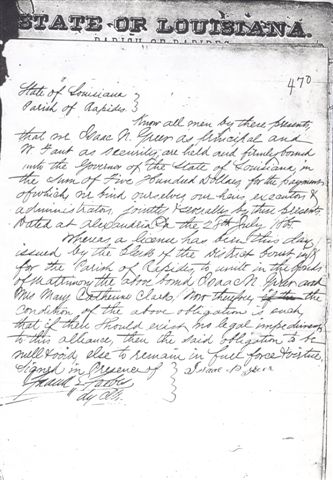 STATE OF LOUISIANA.
PARISH OF RAPIDES
470
State of Louisiana }
Parish of Rapides }
Know all men by these presents
that we Isaac N. Greer as Principal and
W Fant as security are held and firmly bound
unto the Governor of the State of Louisiana in
the Sum of Five Hundred Dollars for the payment
of which we bind ourselves our heirs, executors &
administrators jointly & severally by these presents
Dated at Alexandria La the 28th July
Whereas a licence has been this day
issued by the Clerk of the District Court in &
for the Parish of Rapides, to unite in the bonds
of Matrimony the above bond Isaac N. Greer and
Miss Mary Catherine Clark. Now therefore if the
condition of the above obligation is such
that if there should exist no legal impediment
to this alliance, then the said obligation to be
null & void, else to remain in full force & virtue
Signed in Presence of }
Dy Clk